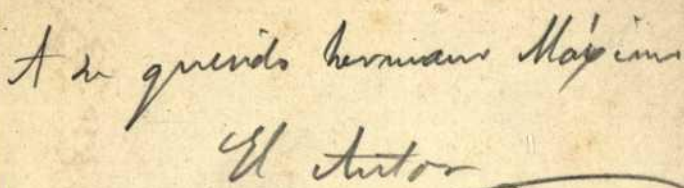 A su querido hermano Máximo
El Autor